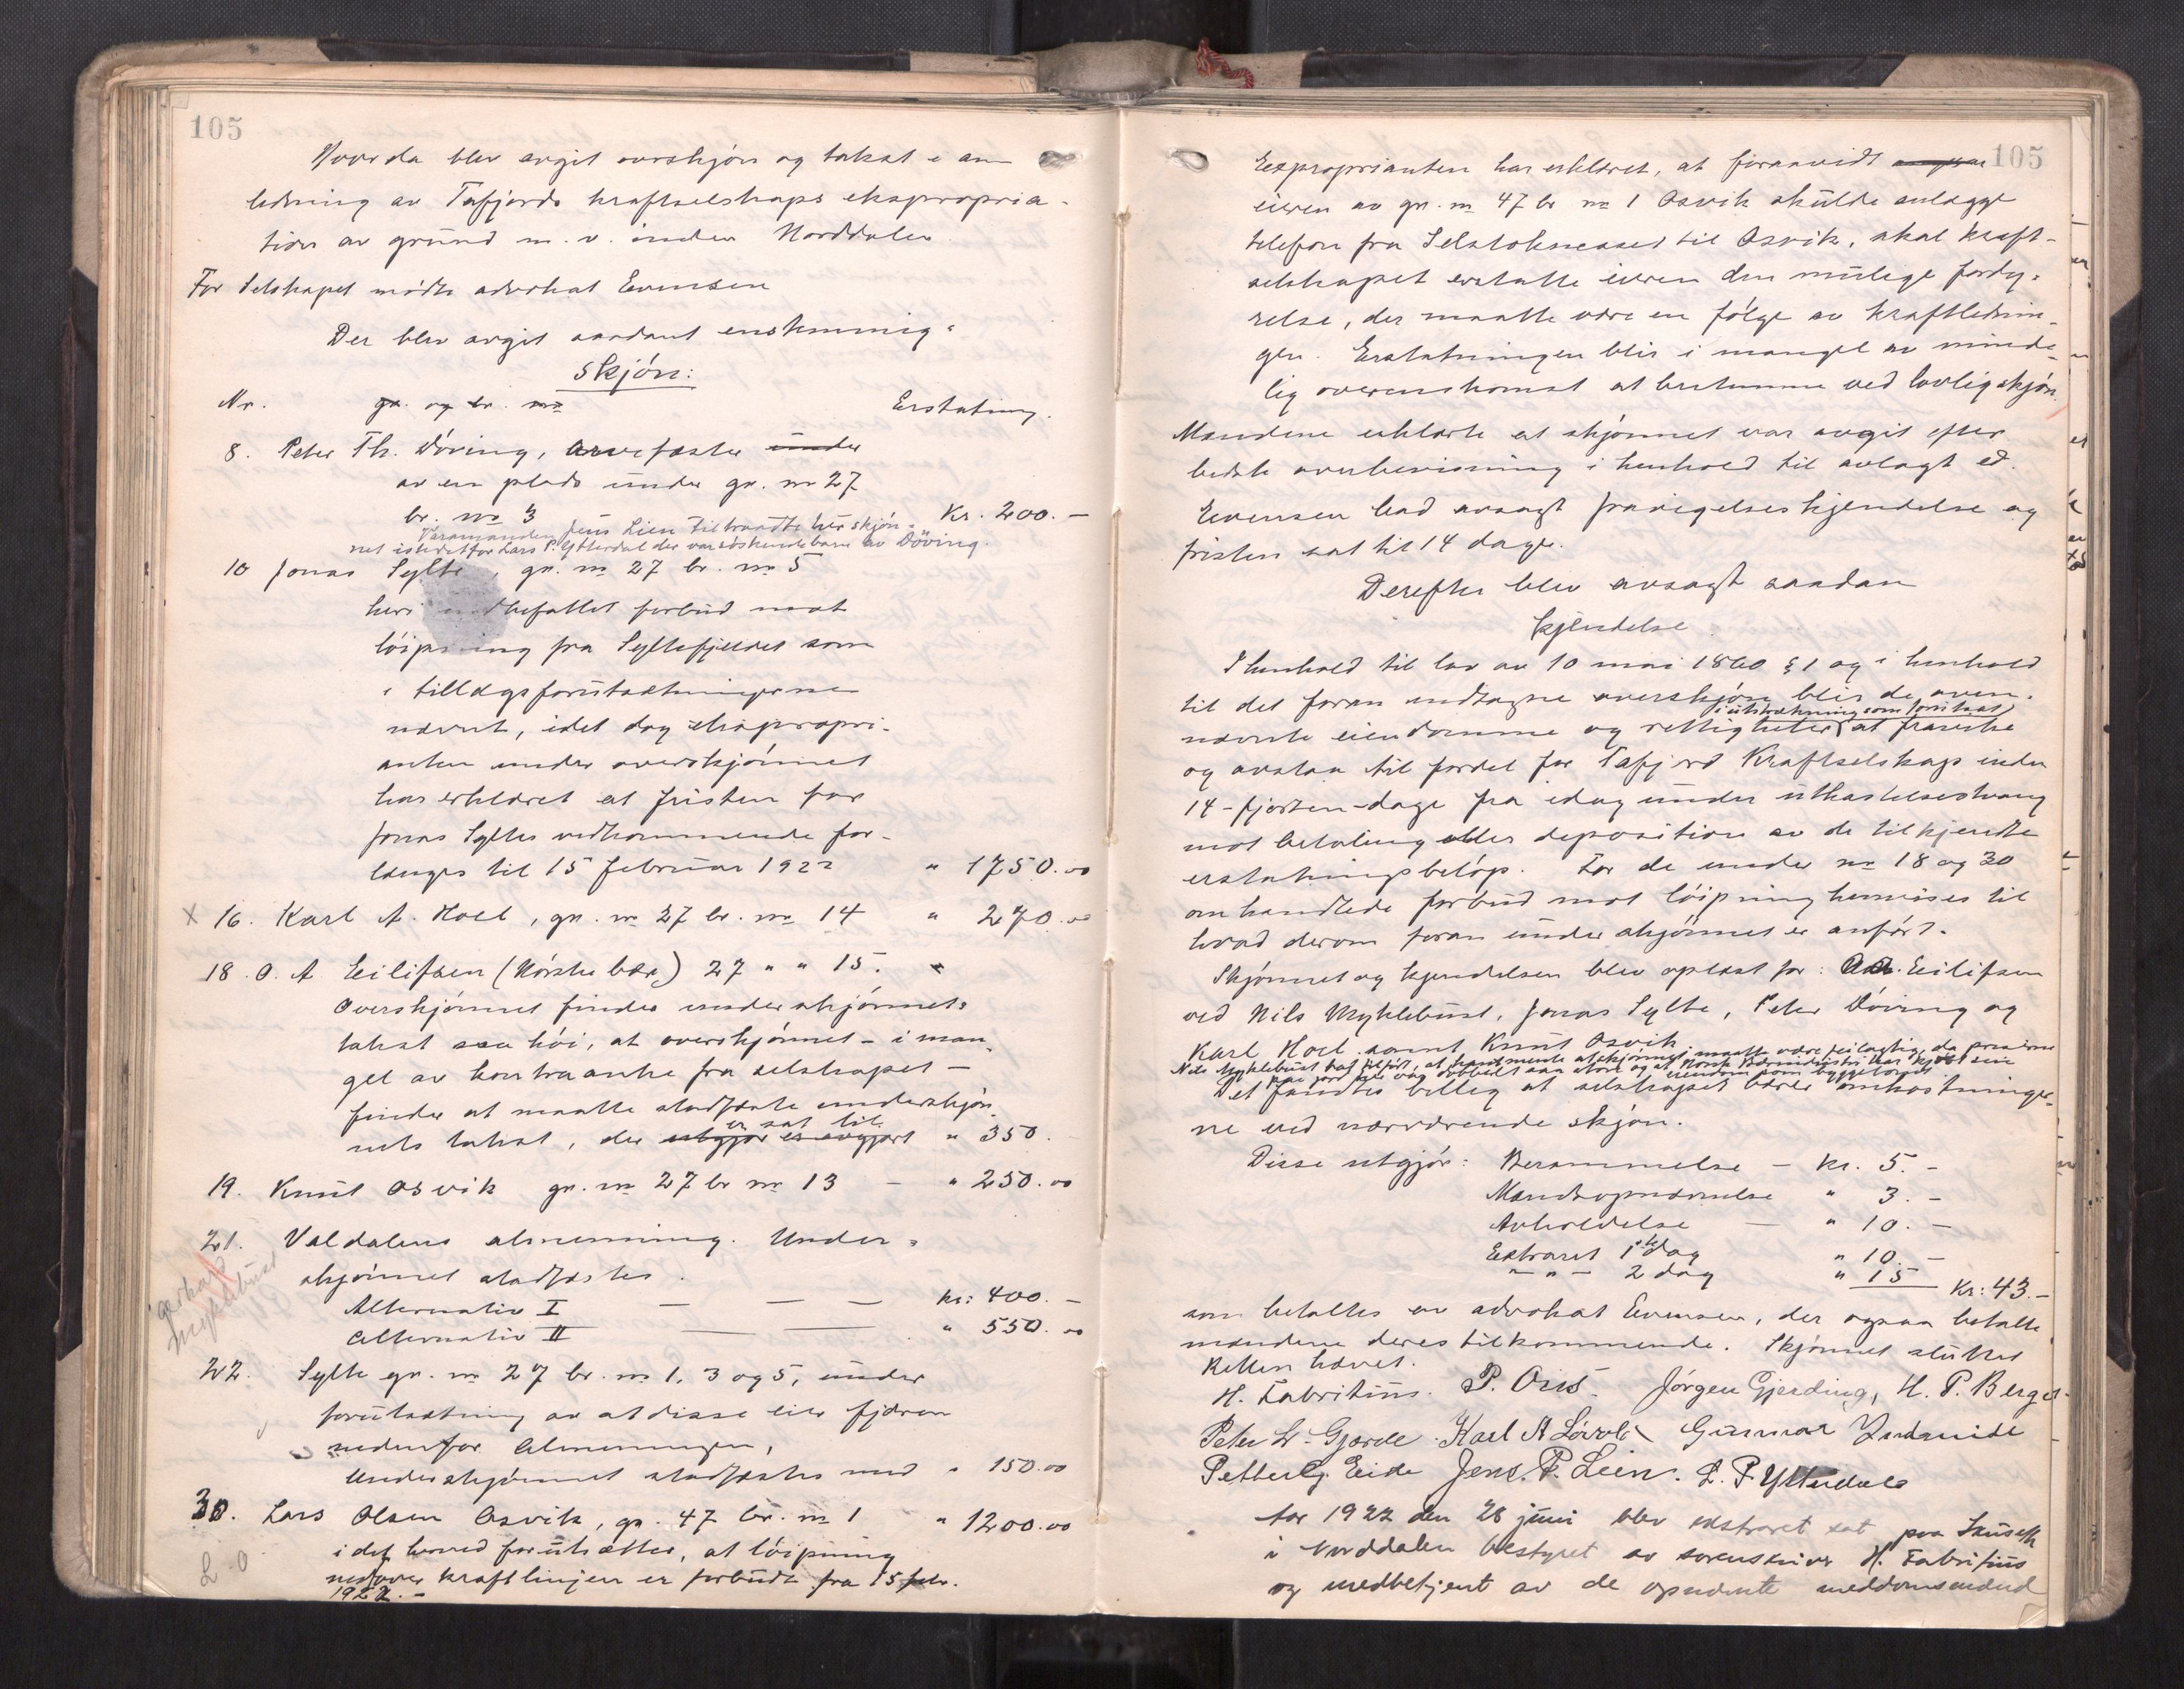 105
Hvorda blev avgit overskjøn og takst i an
ledning av Tafjords kraftselskaps ekspropria-
tion av grund m. v. inden Norddalen
For Selskapet mødte advokat Evensen
Der blev avgit saadant enstemmig
Skjøn:
Nr. gn. og br. no Erstatning.
8. Peter Th. Døving, arvefæster under
av en plads under gn. no 27
br. no 3 Kr. 200.—
Varamanden Jens Lien tiltraadte her skjøn-
net istedetfor Lars P. Ytterdal der var søskendebarn av Døving.
10 Jonas Sylte, gn. no 27 br. no 5
heri indbefattet forbud mot
løipning fra Syltefjeldet som
i tillægsforutsætningerne
nævnt, idet dog ekspropri-
anten under overskjønnet
har erklæret at fristen for
Jonas Syltes vedkommende for-
længes til 15 februar 1922 " 1750.00
x 16. Karl A. Hoel, gn. no 27 br. no 14 " 270.00
18. O. A. Eilifsen (Norske bær.) 27 " " 15.
Overskjønnet finder underskjønnets
takst saa høi, at overskjønnet – i man-
gel av kontraanke fra selskapet –
finder at maatte stadfæste underskjøn
er sat til
nets takst, der utgjør er avgjort " 350.
19. Knut Osvik gn. no 27 br no 13 — " 250.00
21. Valdalens almenning. Under-
skjønnet stadfæstes.
Alternativ I — — — kr: 400.—
Alternativ II — — " 550.00
Myklebust
22. Sylte gn. no 27 br. no 1, 3 og 5, under
forutsætning av at disse eier fjæren
nedenfor Almenningen,
Underskjønnet stadfæstes med " 150.00
30. Lars Olsen Osvik, gn. 47 br. no 1 " 1200.00
i det herved forutsættes, at løipning
nedover kraftlinjen er forbudt fra 15 febr.
1922.—
L. O
105
Expropianten har erklæret, at forsaavidt
eieren av gn. no 47 br no 1 Osvik skulde anlægge
telefon fra Selstokneset til Osvik, skal kraft-
selskapet erstatte eieren den mulige fordy-
relse, der maatte være en følge av kraftlednin-
gen. Erstatningen blir i mangel av minde-
lig overenskomst at bestemme ved lovlig skjøn.
Mændene erklærte at skjønnet var avgit efter
bedste overbevisning i henhold til avlagt ed.
Evensen bad avsagt fravigelseskjendelse og
fristen sat til 14 dage.
Derefter blev avsagt saadan
kjendelse
I henhold til lov av 10 mai 1860 § 1 og i henhold
til det foran indtagne overskjøn blir de oven-
i utstrækning som forutsat
nævnte eiendomme og rettigheter at fravike
og avstaa til fordel for Tafjord Kraftselskap inden
14 - fjorten - dage fra idag under utkastelsestvang
mot betaling eller deposition av de tilkjendte
erstatningsbeløp. For de under no 18 og 30
omhandlede forbud mot løipning henvises til
hvad derom foran under skjønnet er anført.
Skjønnet og kjendelsen blev oplæst for: O.A. Eilifsen
ved Nils Myklebust, Jonas Sylte, Peter Døving og
Karl Hoel samt Knut Osvik.
Nils Myklebust bad tilført, at han mente at skjønnet maatte være feilagtig, da
Det fandtes billig at selskapet bærer omkostninger-
ne ved nærværende skjøn.
Disse utgjør: Berammelse — kr. 5.—
Mandsopnævnelse " 3.—
Avholdelse — " 10.—
Extraret 1ste dag " 10.—
— " — 2 dag " 15 kr: 43.—
som betaltes av advokat Evensen, der ogsaa betalte
mændene deres tilkommende. Skjønnet sluttet
Retten hævet.
H. Fabritius. P. Ous. Jørgen Gjerding, H. P. Berge.
Peter L. Gjærde. Karl A Løvoll Gunnar Indreeide
Petter G. Eide Jens. P. Lien. L. P. Ytterdal
Aar 1922 den 28 juni blev ekstraret sat paa
i Norddalen bestyret av sorenskriver H. Fabritius
og medbetjent av de opnævnte meddomsmænd